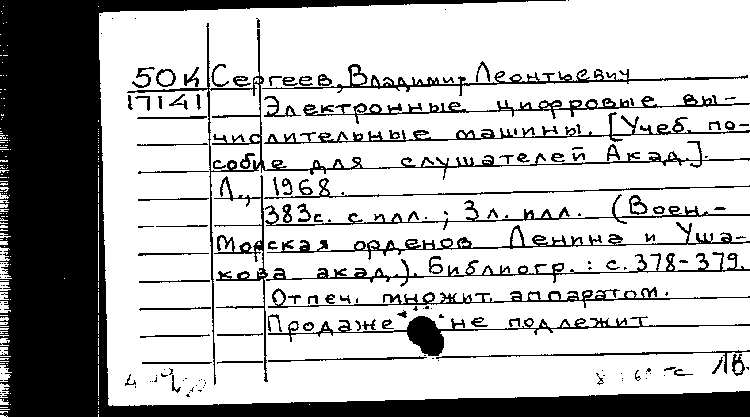 50к Сергеев, Владимир Леонтьевич
17141 Электронные цифровые вы-
числительные машины. [Учеб. по-
собие для слушателей Акад.].
Л., 1968.
383с. с илл.; 3л. илл. (Воен.-
Морская орденов Ленина и Уша-
кова акад.). Библиогр.: с. 378-379.
Отпеч. множит. аппаратом.
Продаже не подлежит